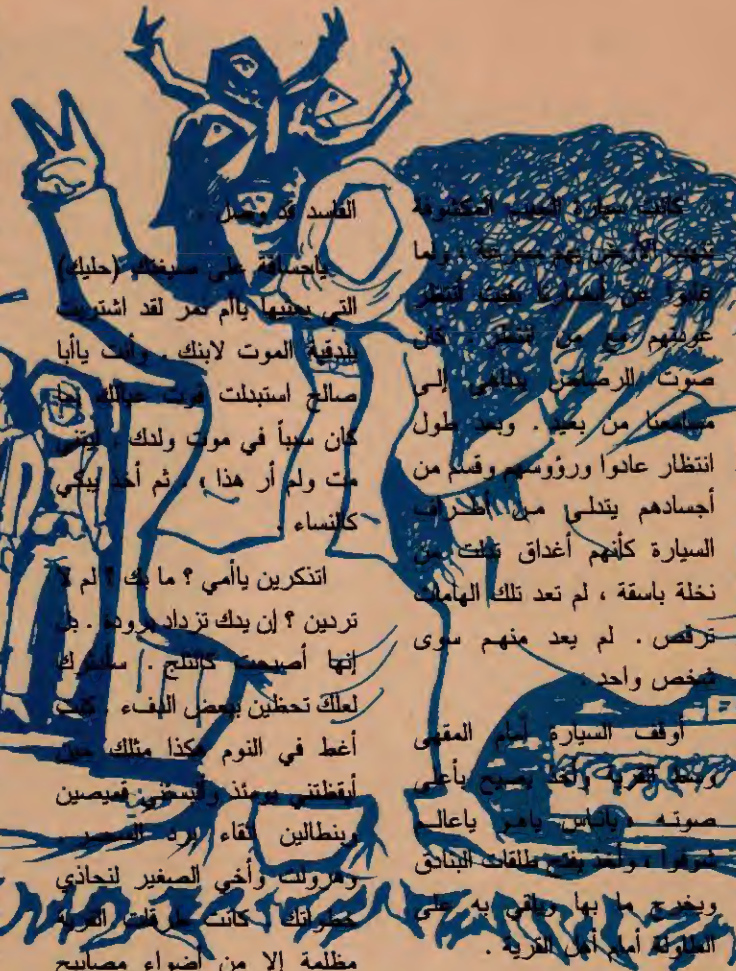 كانت سيارة الجيب المكشوفة
تنهب الأرض بهم مسرعة ، ولما
غابوا عن أبصارنا بقيت أنتظر
عودتهم مع من انتظر . كان
صوت الرصاص يتناهى إلى
مسامعنا من بعيد . وبعد طول
انتظار عادوا ورؤوسهم وقسم من
أجسادهم يتدلى من أطراف
السيارة كأنهم أغداق تدلت من
نخلة باسقة ، لم تعد تلك الهامات
ترقص . لم يعد منهم سوى
شخص واحد .
أوقف السيارة أمام المقهى
وسط القرية وأخذ يصيح بأعلى
صوته « ياناس ياهو ياعالم
شوفوا » وأخذ يفتح طلقات البنادق
ويخرج ما بها ويلقي به على
الطاولة أمام أهل القرية .
الفاسد قد وصل .
ياحسافة على صيغتك (حليك)
التي بعتيها ياأم نمر لقد اشتريت
بندقية الموت لابنك . وأنت ياأبا
صالح استبدلت قوت عيالك بما
كان سبباً في موت ولدك ، ليتني
مت ولم أر هذا » . ثم أخذ يبكي
كالنساء .
اتذكرين ياأمي ؟ ما بك ؟ لم لا
تردين ؟ إن يدك تزداد برودة . بل
إنها أصبحت كالثلج . سأتركك
لعلك تحظين ببعض الدفء . كنت
أغط في النوم هكذا مثلك حين
أيقظتني يومئذ وألبستني قميصين
وبنطالين اتقاء برد السحر .
وهرولت وأخي الصغير لنحاذي
خطواتك . كانت طرقات القرية
مظلمة إلا من أضواء مصابيح